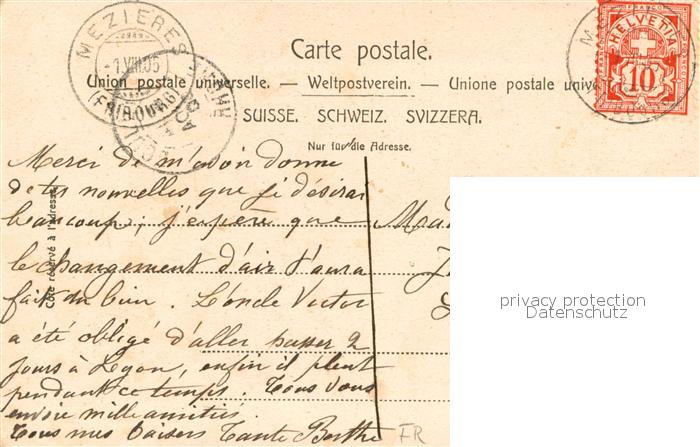 Carte postale.
Union postale universelle. — Weltpostverein. — Unione postale unive
SUISSE. SCHWEIZ. SVIZZERA.
Nur für die Adresse.
Côté réservé à l'adresse.
MEZIERES
-1.VIII.05
(FRIBOURG)
HELVETIA
10
Merci de m'avoir donné
de tes nouvelles que je désirai
beaucoup; j'espère que
le changement d'air t'aura
fait du bien. L'oncle Victor
a été obligé d'aller passer 2
jours à Lyon, enfin il pleut
pendant ce temps. Tous vous
envoie mille amitiés.
Tous mes baisers Tante Berthe
Mad
FR
privacy protection
Datenschutz